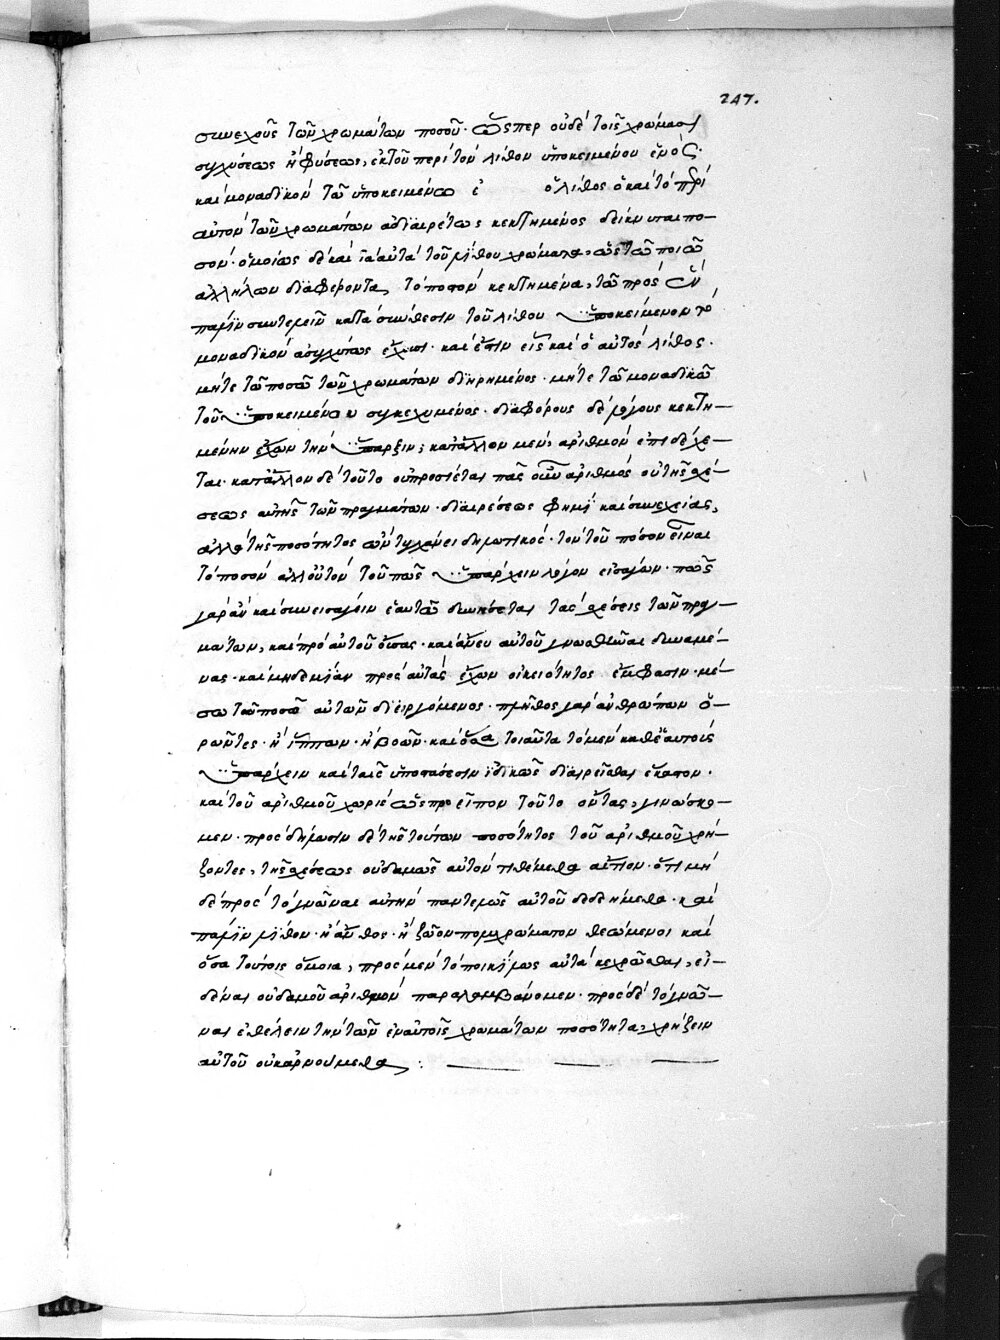 247.
συνεχοῦς τῶν χρωμάτων ποσοῦ· ὥσπερ οὐδὲ τοῖς χρώμασι
συγχύσεως ἢ φύσεως, ἐκ τοῦ περὶ τὸν λίθον ὑποκειμένου ἑνὸς·
καὶ μοναδϊκοῦ τῶ ὑποκειμένω ὁ λίθος ὁ καὶ τὸ περὶ
αὐτὸν τῶν χρωμάτων ἀδϊαιρέτως κεκτημένος
σόν· ὁμοίως δὲ καὶ τὰ αὐτὰ τοῦ λίθου χρώματα, ὡς τῶ ποιῶ
ἀλλήλων δϊαφέροντα, τὸ ποσὸν κεκτημένα, τῶ πρὸς ἓν
πάλϊν συντελεῖν κατὰ σύνθεσιν τοῦ λίθου ὑποκείμενον τὸ
μοναδϊκὸν ἀσυγχύτως ἔχουσι· καὶ ἔστιν εἷς καὶ ὁ αὐτὸς λίθος·
μήτε τῶ ποσῶ τῶν χρωμάτων διηρημένος· μήτε τῶ μοναδικῶ
τοῦ ὑποκειμένου συγκεχυμένος· δϊαφόρους δὲ λόγους κεκτη-
μένην ἔχων τὴν ὕπαρξιν, κατ' ἄλλον μὲν, ἀριθμὸν ἐπιδέχε-
ται· κατ' ἄλλον δὲ τοῦτο οὐ προσίεται πᾶς οὖν ἀριθμὸς οὐ τῆς θέ-
σεως αὐτῆς τῶν πραγμάτων· δϊαιρέσεως φημὶ καὶ συνεχείας,
ἀλλὰ τῆς ποσότητος ὢν τυγχάνει δηλωτικὸς· τὸν τοῦ πόσον εἶναι
τὸ ποσὸν ἀλλ' οὐ τὸν τοῦ πῶς ὑπάρχειν λόγον εἰσάγων· πῶς
γὰρ ἂν καὶ συνεισαγάγειν ἑαυτῶ δυνήσεται τὰς θέσεις τῶν πραγ-
μάτων, καὶ πρὸ αὐτοῦ οὔσας· καὶ ἄνευ αὐτοῦ γνωσθῆναι δυναμέ-
νας· καὶ μηδεμίαν πρὸς αὐτὰς ἔχων οἰκειότητος ἔμφασιν· μέ-
σω τῶ ποσῶ αὐτῶν διειργόμενος· πλῆθος γὰρ ἀνθρώπων ὁ-
ρῶντες· ἢ ἵππων· ἢ βοῶν· καὶ ὅσα τοιαῦτα τὸ μὲν καθ' ἑαυτοὺς
ὑπάρχειν καὶ ταῖς ὑποστάσεσιν ϊδικῶς διαιρεῖσθαι ἕκαστον·
καὶ τοῦ ἀριθμοῦ χωρὶς ὥσπερ εἶπον τοῦτο οὕτως, γινώσκο-
μεν· πρὸς δήλωσιν δὲ τῆς τούτων ποσότητος τοῦ ἀριθμοῦ χρή-
ζοντες, τῆς θέσεως οὐδαμῶς αὐτὸν τιθέμεθα αἴτιον· ὅτι μὴ
δὲ πρὸς τὸ γνῶναι αὐτὴν παντελῶς αὐτοῦ δεδεήμεθα· καὶ
πάλϊν λίθον· ἢ ἄνθος· ἢ ζῶον πολυχρώματον θεώμενοι καὶ
ὅσα τούτοις ὅμοια, πρὸς μὲν τὸ ποικίλως αὐτὰ κεχρῶσθαι, εἰ-
δέναι οὐδαμοῦ ἀριθμὸν παραλαμβάνομεν· πρὸς δὲ τὸ γνῶ-
ναι ἐθέλειν τὴν τῶν ἐν αὐτοῖς χρωμάτων ποσότητα, χρήζειν
αὐτοῦ οὐκ ἀρνούμεθα :